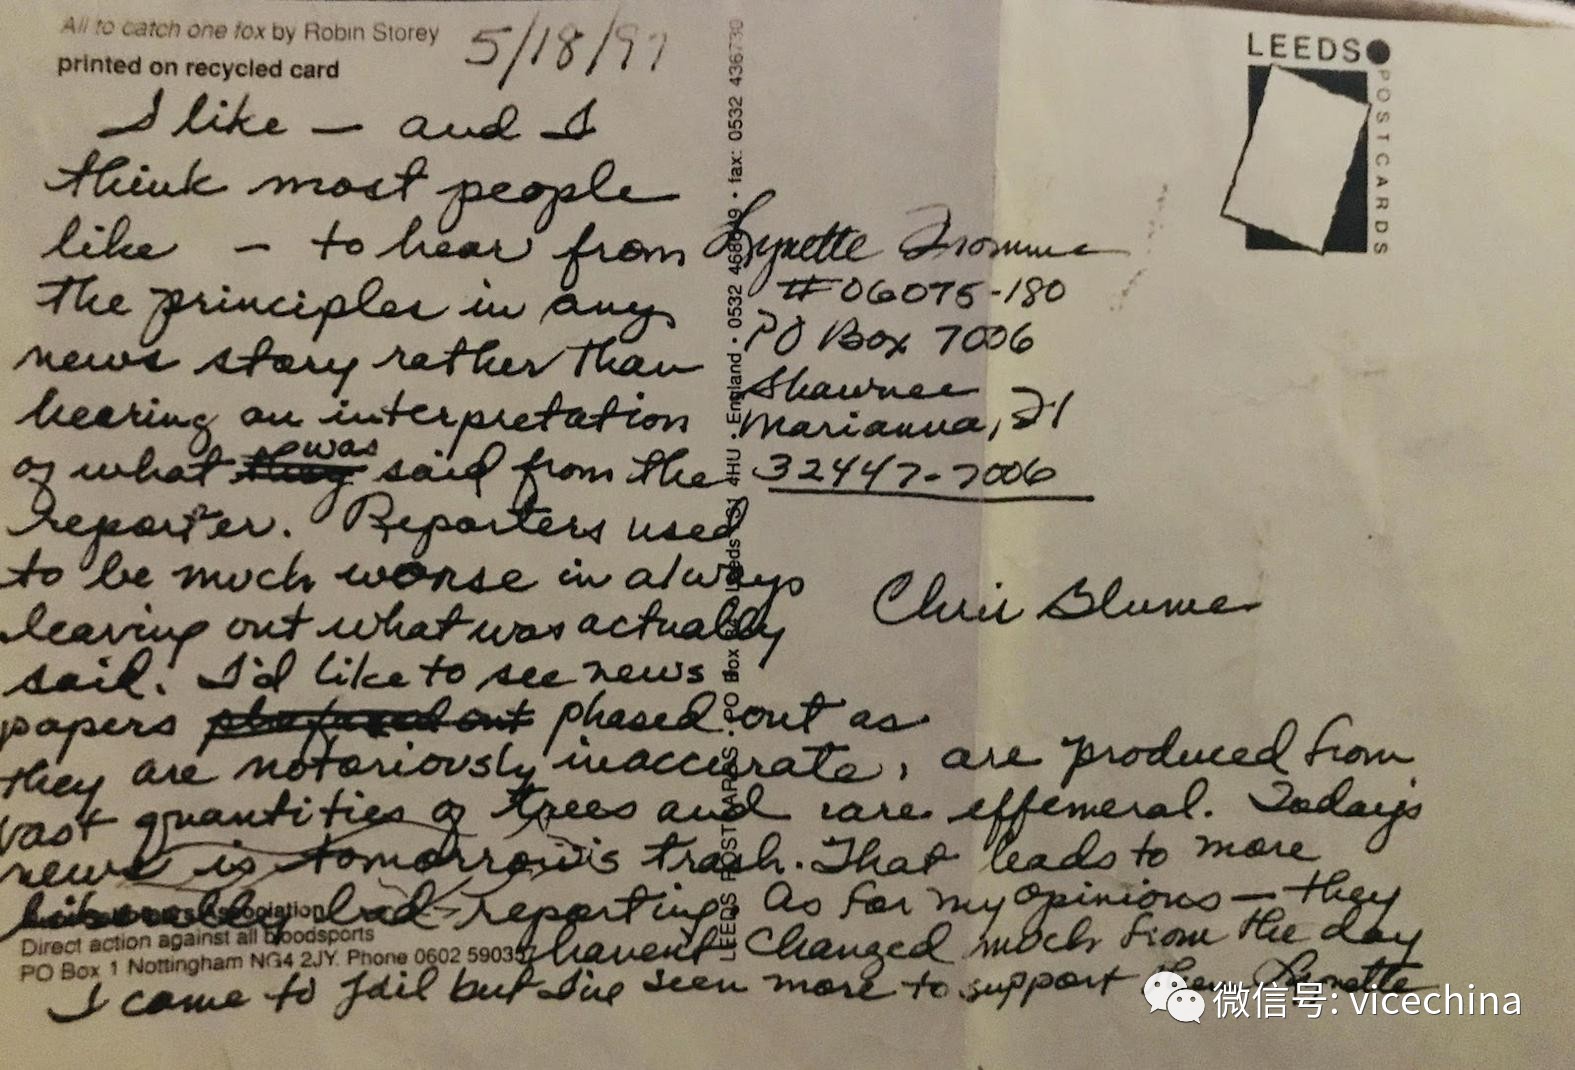 All to catch one fox by Robin Storey
printed on recycled card
5/18/97
I like — and I
think most people
like — to hear from
the principles in any
news story rather than
hearing an interpretation
of what they was said from the
reporter. Reporters used
to be much worse in always
leaving out what was actually
said. I'd like to see news
papers phased out as
they are notoriously inaccurate, are produced from
vast quantities of trees and are effemeral. Today's
news is tomorrow's trash. That leads to more
bad reporting. As for my opinions — they
haven't changed much from the day
I came to jail but I've seen more to support them Lynette
Association
Direct action against all bloodsports
PO Box 1 Nottingham NG4 2JY. Phone 0602 59035
LEEDS POSTCARDS • PO Box Leeds 4HU • England • 0532 468649 • fax: 0532 436730
Lynette Fromme
#06075-180
PO Box 7006
Shawnee
Marianna, Fl
32447-7006
Chris Blume
LEEDS
POSTCARDS
微信号: vicechina